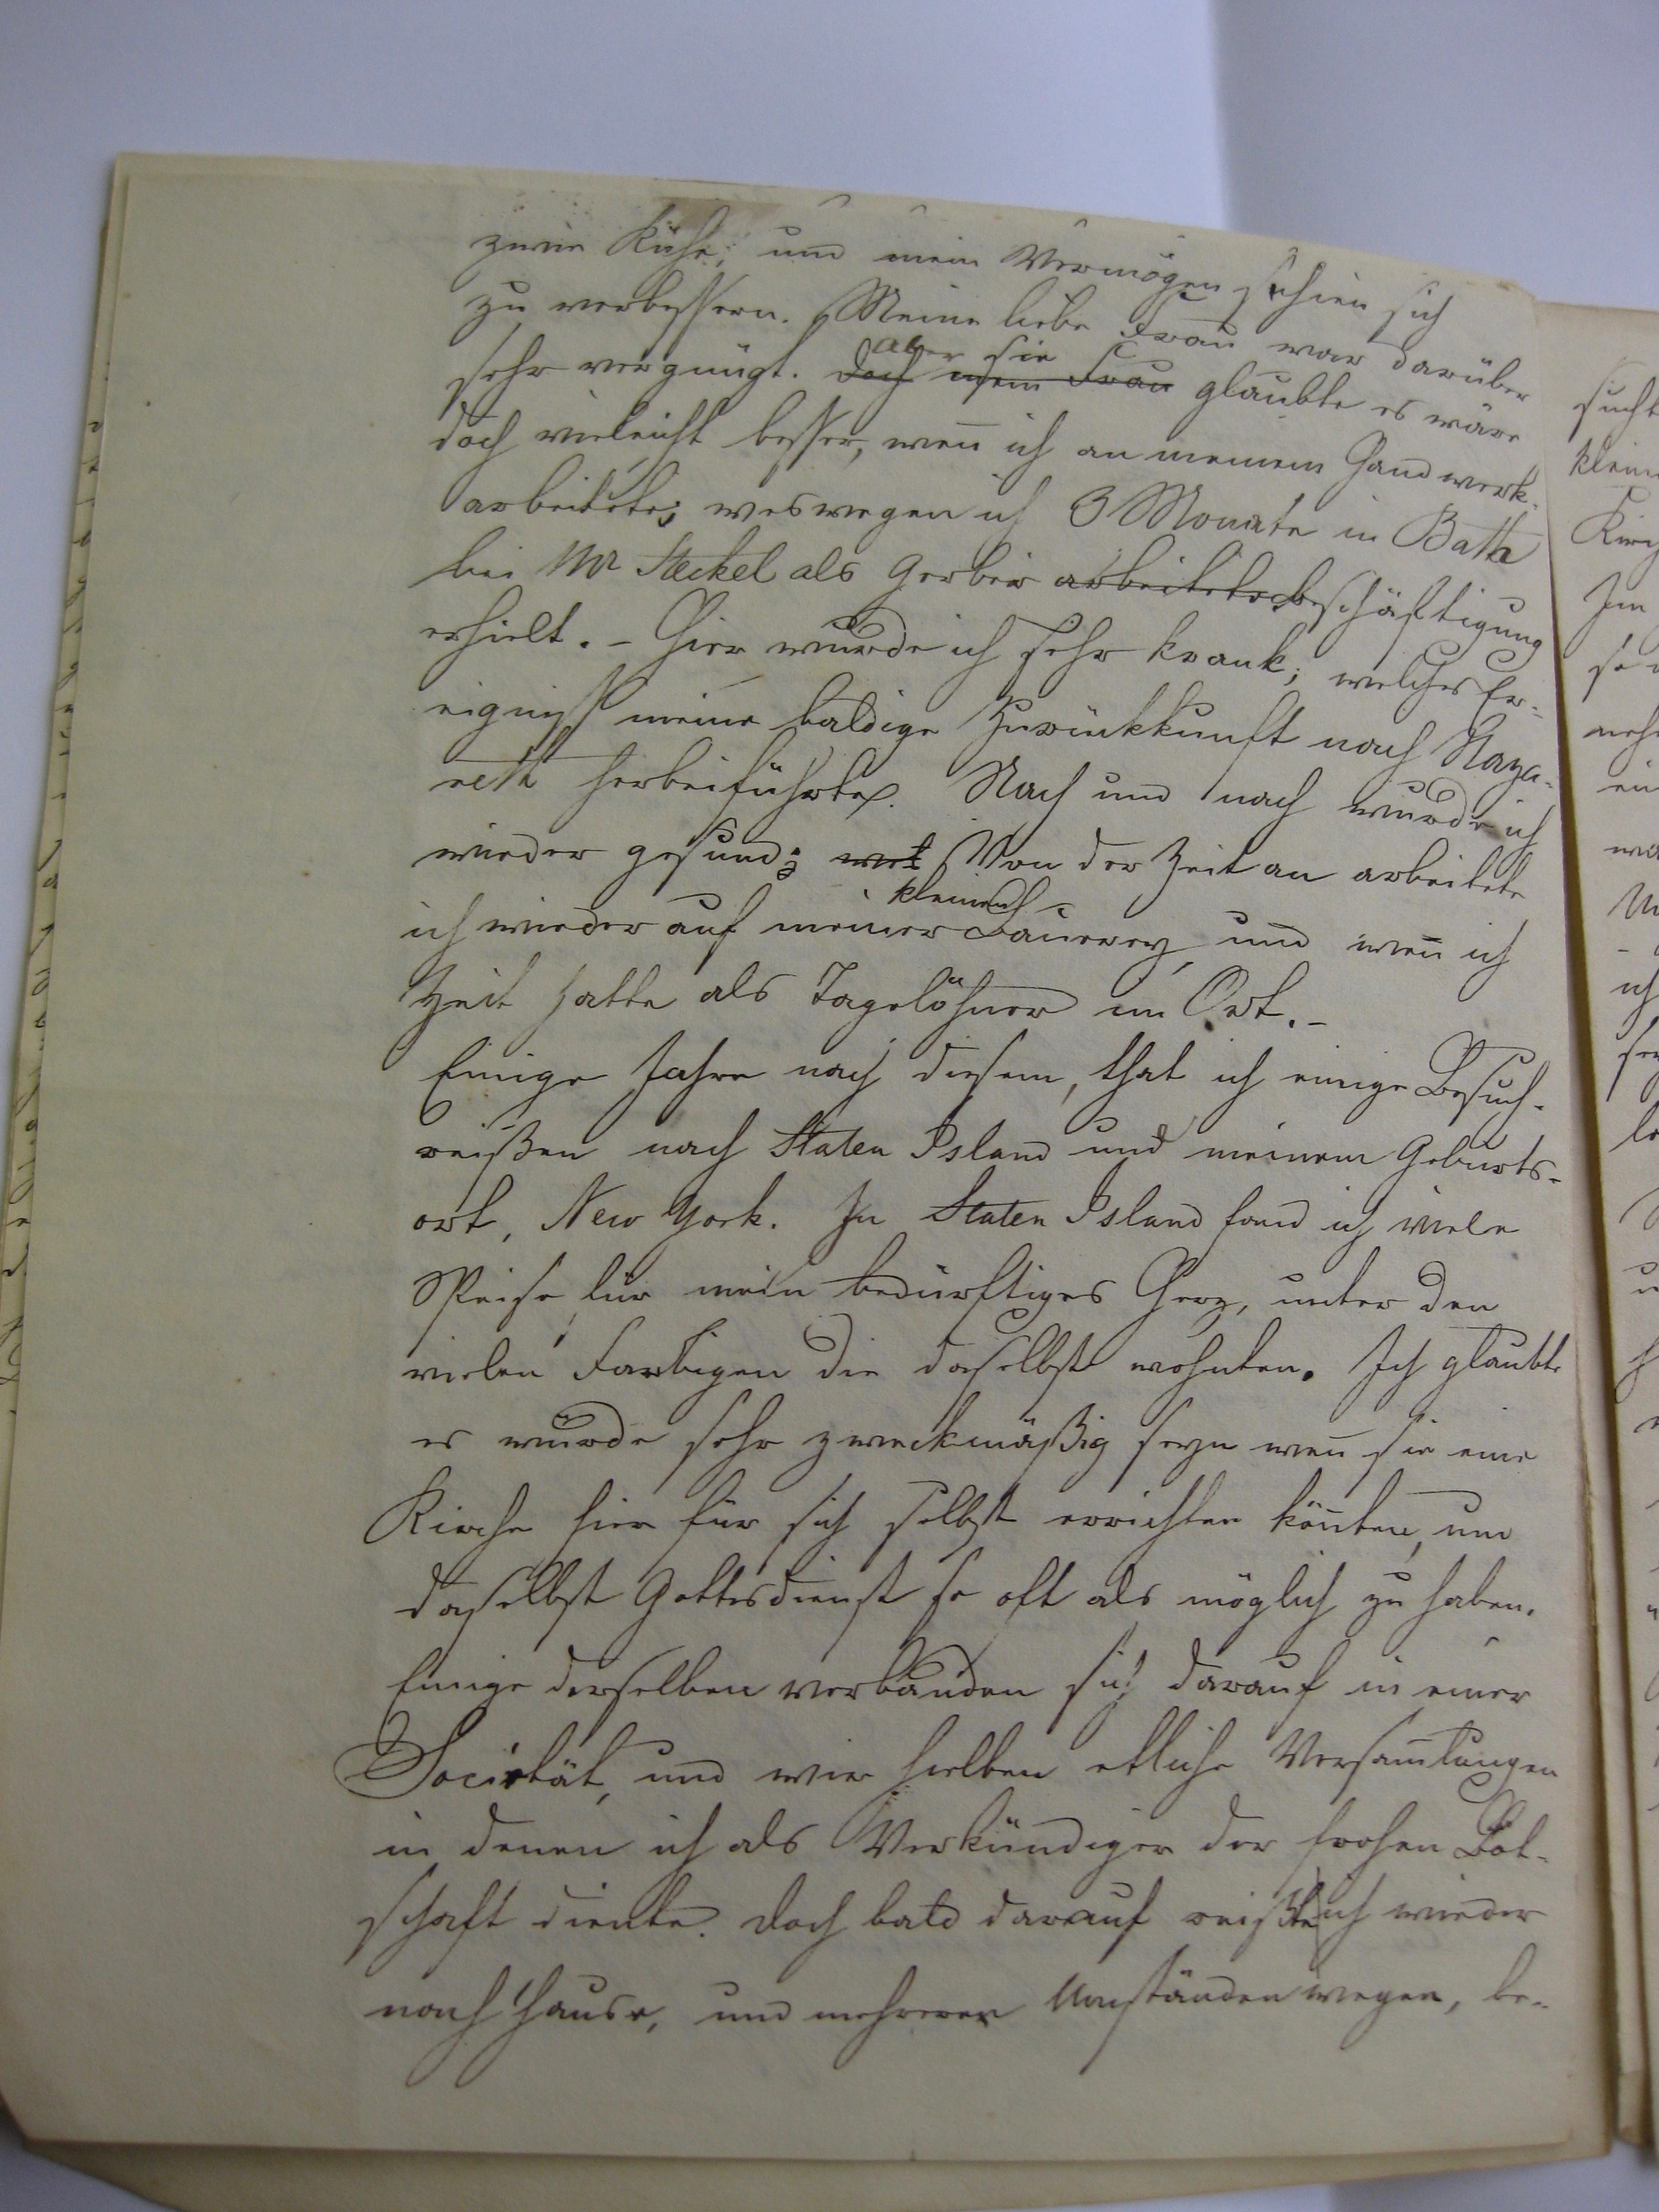 zwei Kühe; und mein Vermögen schien sich
zu verbessern. Meine liebe Frau war darüber
aber sie
sehr vergnügt. Doch mein Frau glaubte es wäre
doch vieleicht besser, weñ ich an meinem Handwerk
arbeitete; weswegen ich 3 Monate in Bath
bei Mr Steckel als Gerber arbeitete Beschäftigung
erhielt. – Hier wurde ich sehr krank; welches Er-
eigniß meine baldige Zurückkunft nach Naza-
reth herbeiführte. Nach und nach wurde ich
wieder gesund; Von der Zeit an arbeitete
kleinen
ich wieder auf meiner Bauerey und weñ ich
Zeit hatte als Tagelöhner im Ort. –
Einige Jahre nach diesem, that ich einige Besuch-
reißen nach Staten Island und meinem Geburts-
ort, New York. In Staten Island fand ich viele
Speise für mein bedürftiges Herz, unter den
vielen Farbigen die daselbst wohnten. Ich glaubte
es wurde sehr zweckmäßig seyn weñ sie eine
Kirche hier für sich selbst errichten köñten, um
daselbst Gottesdienst so oft als möglich zu haben.
Einige derselben verbanden sich darauf in einer
Societät, und wir hielten etliche Versam̃lungen
in denen ich als Verkündiger der frohen Bot-
schaft diente. Doch bald darauf reißte ich wieder
nach Hause, und mehreren Umständen wegen, be-